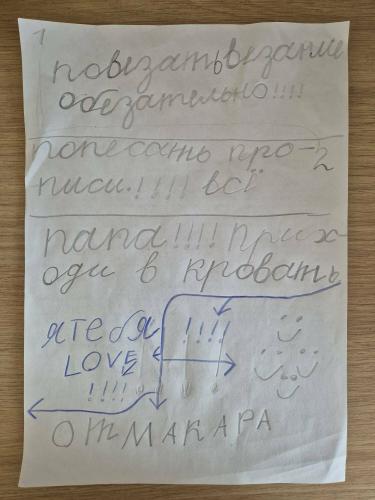 1
повезать везание
обезательно!!!!
попесать про-
2
писи.!!!! всї
папа!!!! прих-
оди в кровать
я тебя !!!!
LOVE
!!!!
ОТ МАКАРА